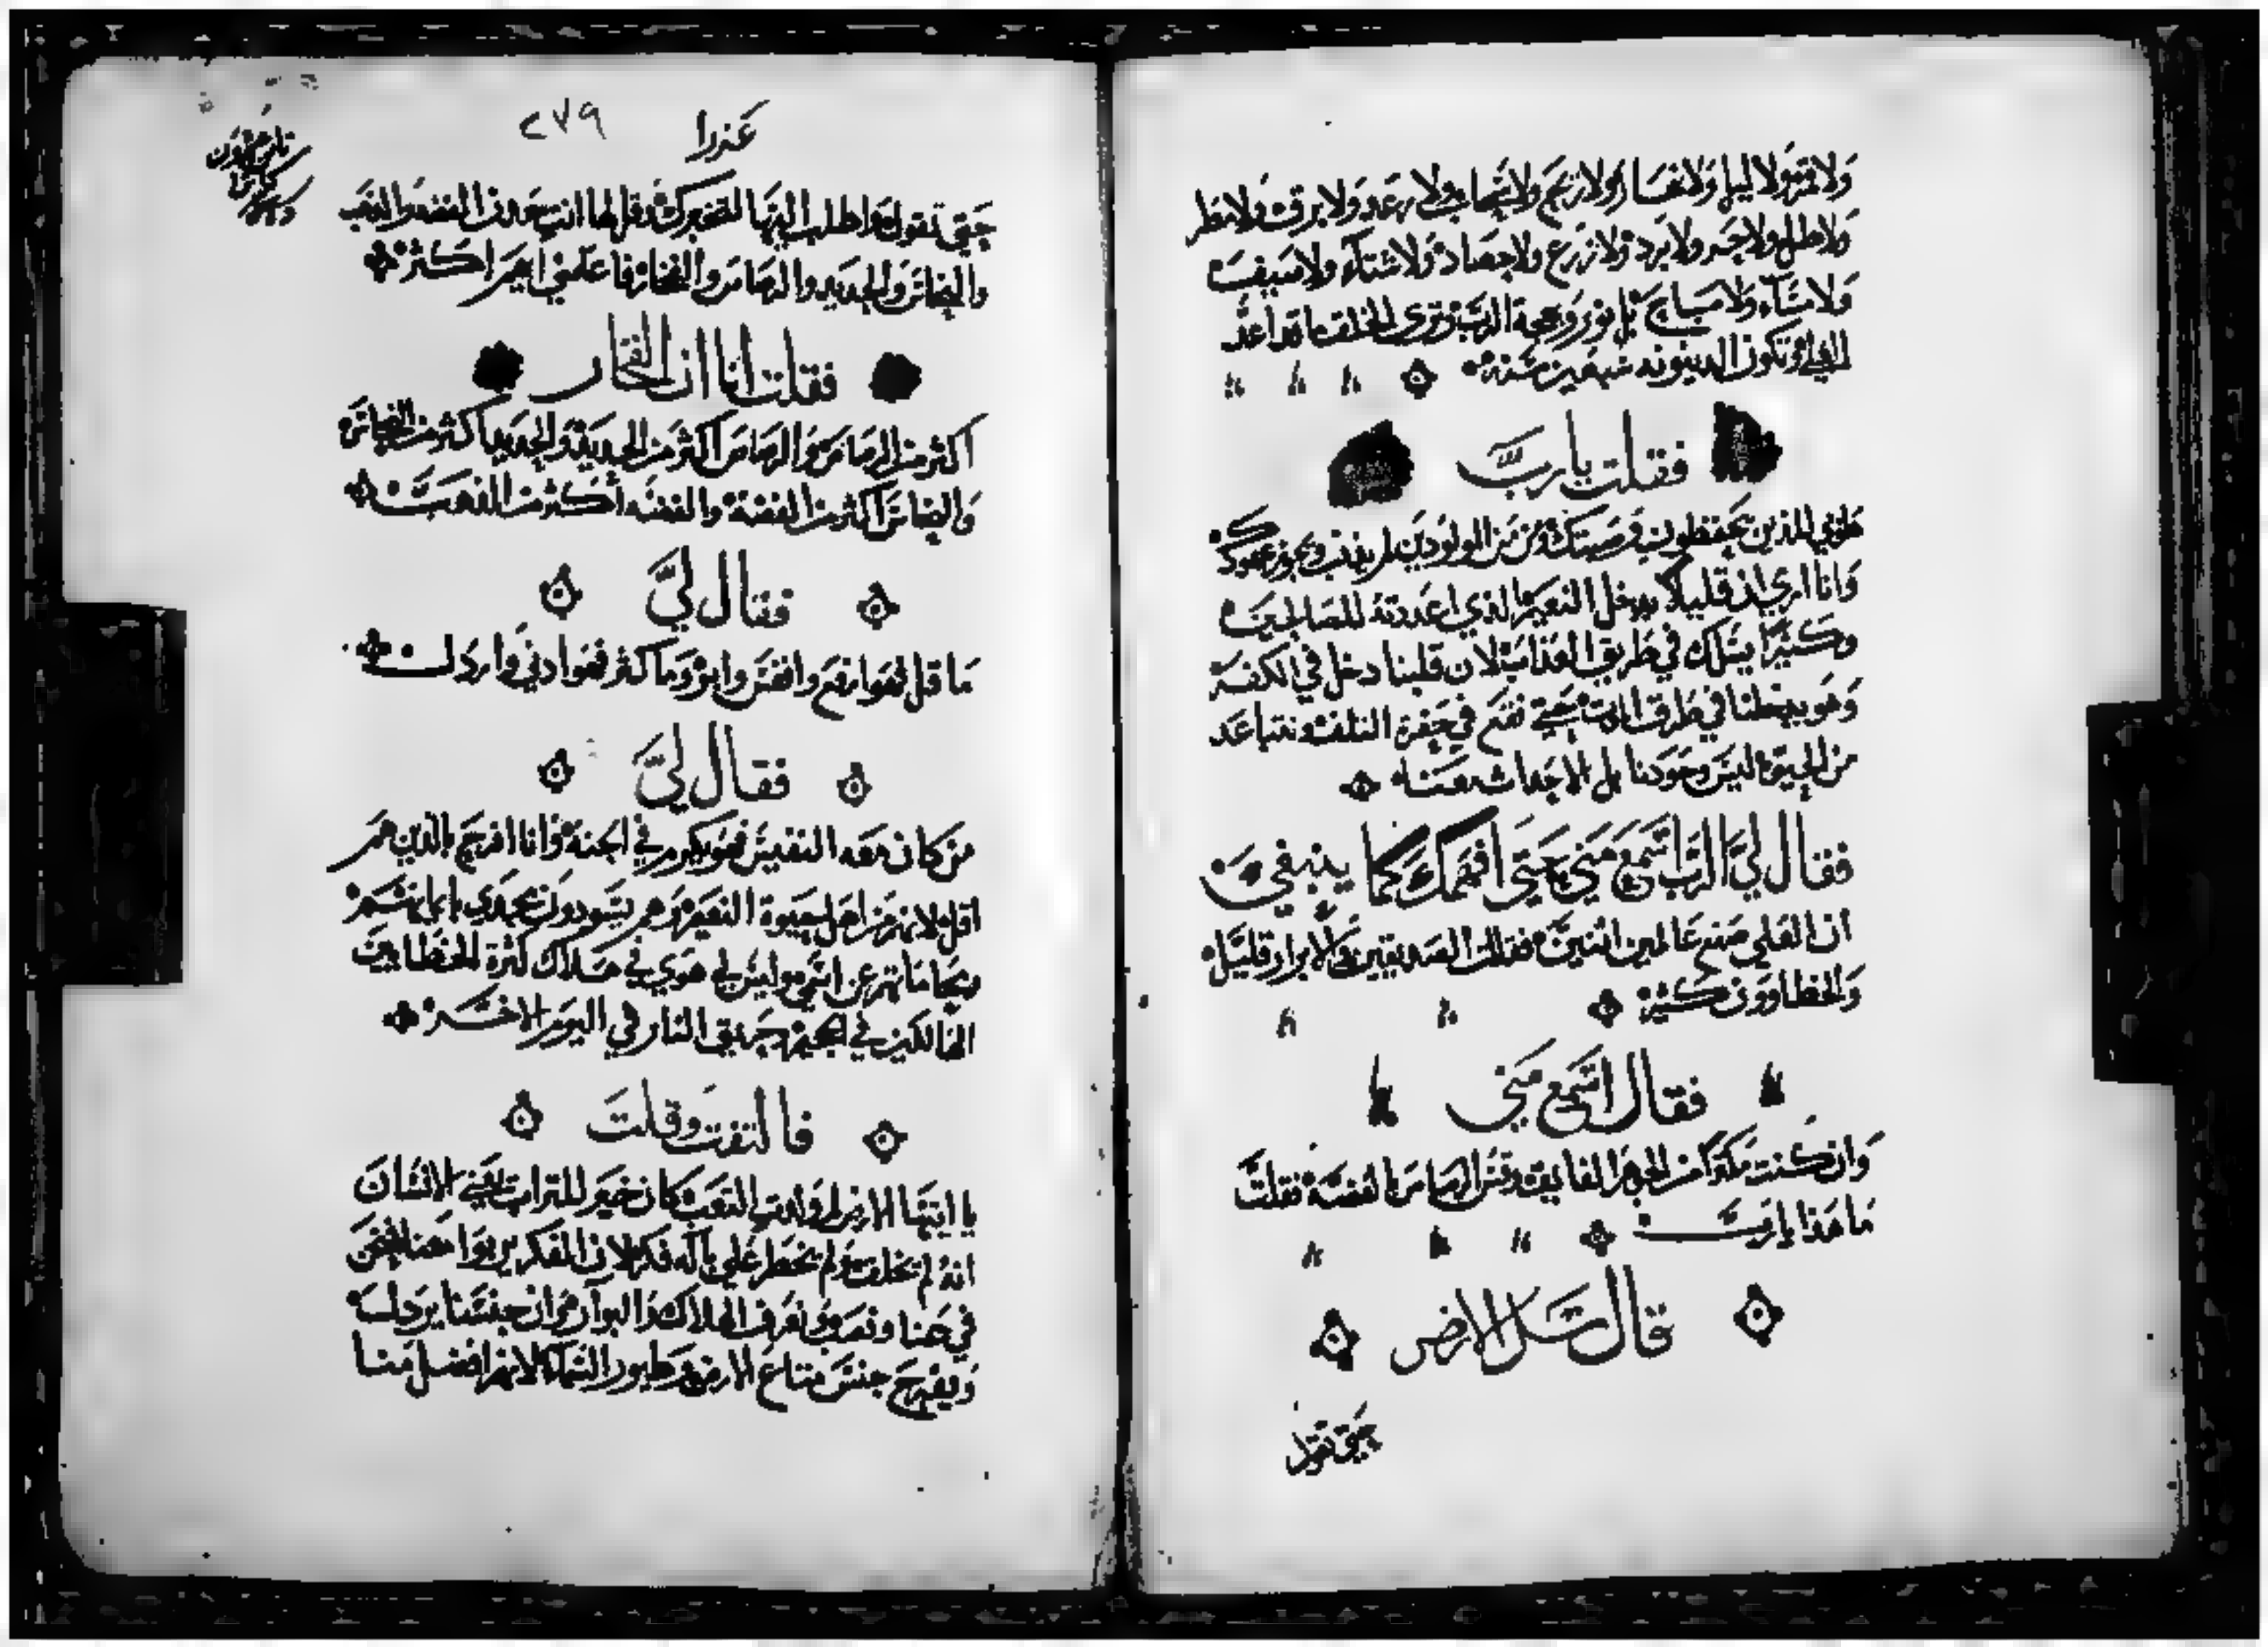 ولا قمر ولا ليل ولا نهار ولا نجم ولا سحاب ولا رعد ولا برق ولا مطر
ولا طل ولا حر ولا برد ولا زرع ولا حصاد ولا شتآء ولا صيف
ولا مسآء ولا صباح بل نور وبهجة الرب وتري الخلق ما قد اعد
لهم وتكون الدينونه سبعين سنة
فقلت يا رب
طوبي للذين يحفظون وصيتك ومن من المولودين لم يذنب ويجوز عهودك
وانا اري ان قليلا يدخل النعيم الذي اعددته للصالحين
وكثيرا يسلك في طريق العذاب لان قلبنا دخل في الكفر
وهو يدخلنا في طرق الموت حتي نقع في حفرة التلف ونتباعد
من الحيوة ليس وحودنا بل الاجداث معنا
فقال لي الرب اسمع مني حتي افهمك كما ينبغي من
ان العلي صنع عالمين اثنين فقال الصديقين والابرار قليل
والخطاوون كثير
فقال اسمع مني
وان كنت مكثرا من الجوهر الفايق وقس الرصاص بالفضة فقلت
ما هذا يارب
قال سل الارض
حتي تقول
عزرا
٢٧٩
حتي تقول واطلب اليها لتخبرك وقل لها انتِ معدن الفضه والذهب
والنحاس والحديد والرصاص والفخار فاعلمني ايهم اكثر
فقلت انا ان الفخار
اكثر من الرصاص والرصاص اكثر من الحديد والحديد اكثر من النحاس
والنحاس اكثر من الفضة والفضه أكثر من الذهب
فقال لي
ما قل فهو ارفع وانفس وابر وما كثر فهو ادني واردل
فقال لي
من كان معه النفيس فهو يكرم في الجنة وانا افرح بالذين هم
اقل لانهم من اهل حيوة النعيم وهم يسودون مجدي بايمانهم
وبحاماتهم عن اسمي وليس لي هوي في هلاك كثرة الخطايين
الهالكين في الجحيم وحريق النار في اليوم الاخر
فالتفت وقلت
يا ايتها الارض لم ولدتِ التعب كان خير للتراب يعني الانسان
انه لم يخلق ولم يخطر علي باله فكر لان الفكر يربوا معنا فنحن
في همنا ونصب ونعرف الهلاك والبوار وان جنسنا يردل
ويفرح جنس متاع الارض وطيور السماء لانهم افضل منا